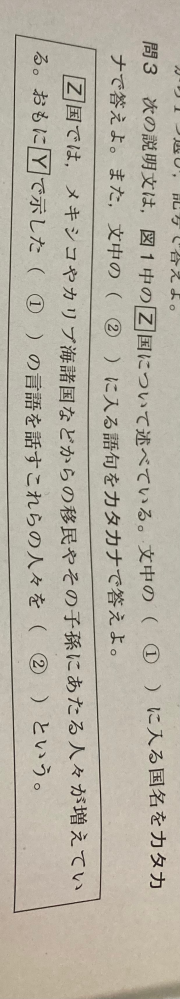 から1つ選び，記号で答えよ。
問3　次の説明文は，図1中のZ国について述べている。文中の（　①　）に入る国名をカタカ
ナで答えよ。また，文中の（　②　）に入る語句をカタカナで答えよ。
Z国では，メキシコやカリブ海諸国などからの移民やその子孫にあたる人々が増えてい
る。おもにYで示した（　①　）の言語を話すこれらの人々を（　②　）という。